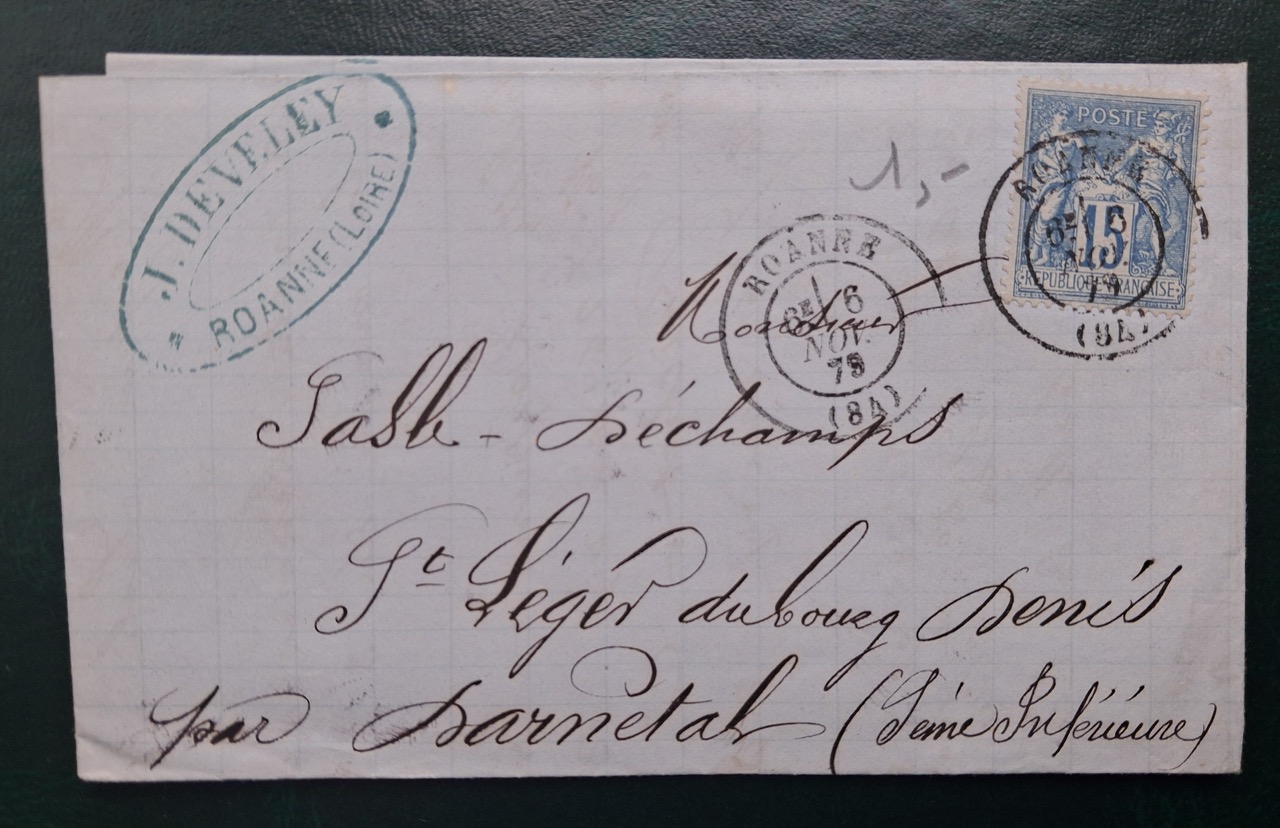 J. DEVELEY
ROANNE (LOIRE)
POSTE
15
REPUBLIQUE FRANÇAISE
ROANNE
6
NOV.
(84)
1,-
ROANNE
6E
6
NOV.
79
(84)
Monsieur
Déchamps
St Léger du bourg Denis
par Darnetal (Seine Inférieure)